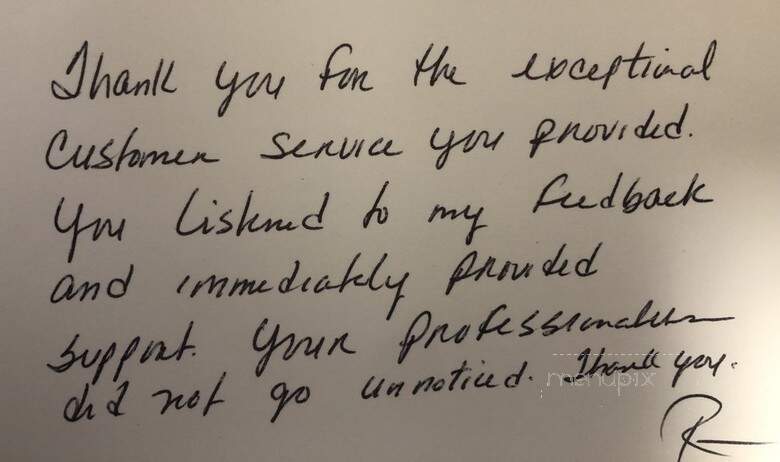 Thank you for the exceptional
Customer Service you provided.
You listened to my feedback
and immediately provided
support. Your professionalism
did not go unnoticed. Thank you.
R
menupix